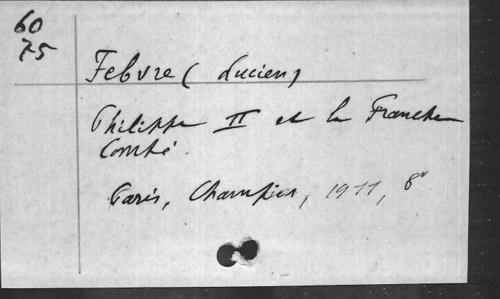 60
75
Febvre (Lucien)
Philippe II et la Franche
Comté.
Paris, Champion, 1911, 8°